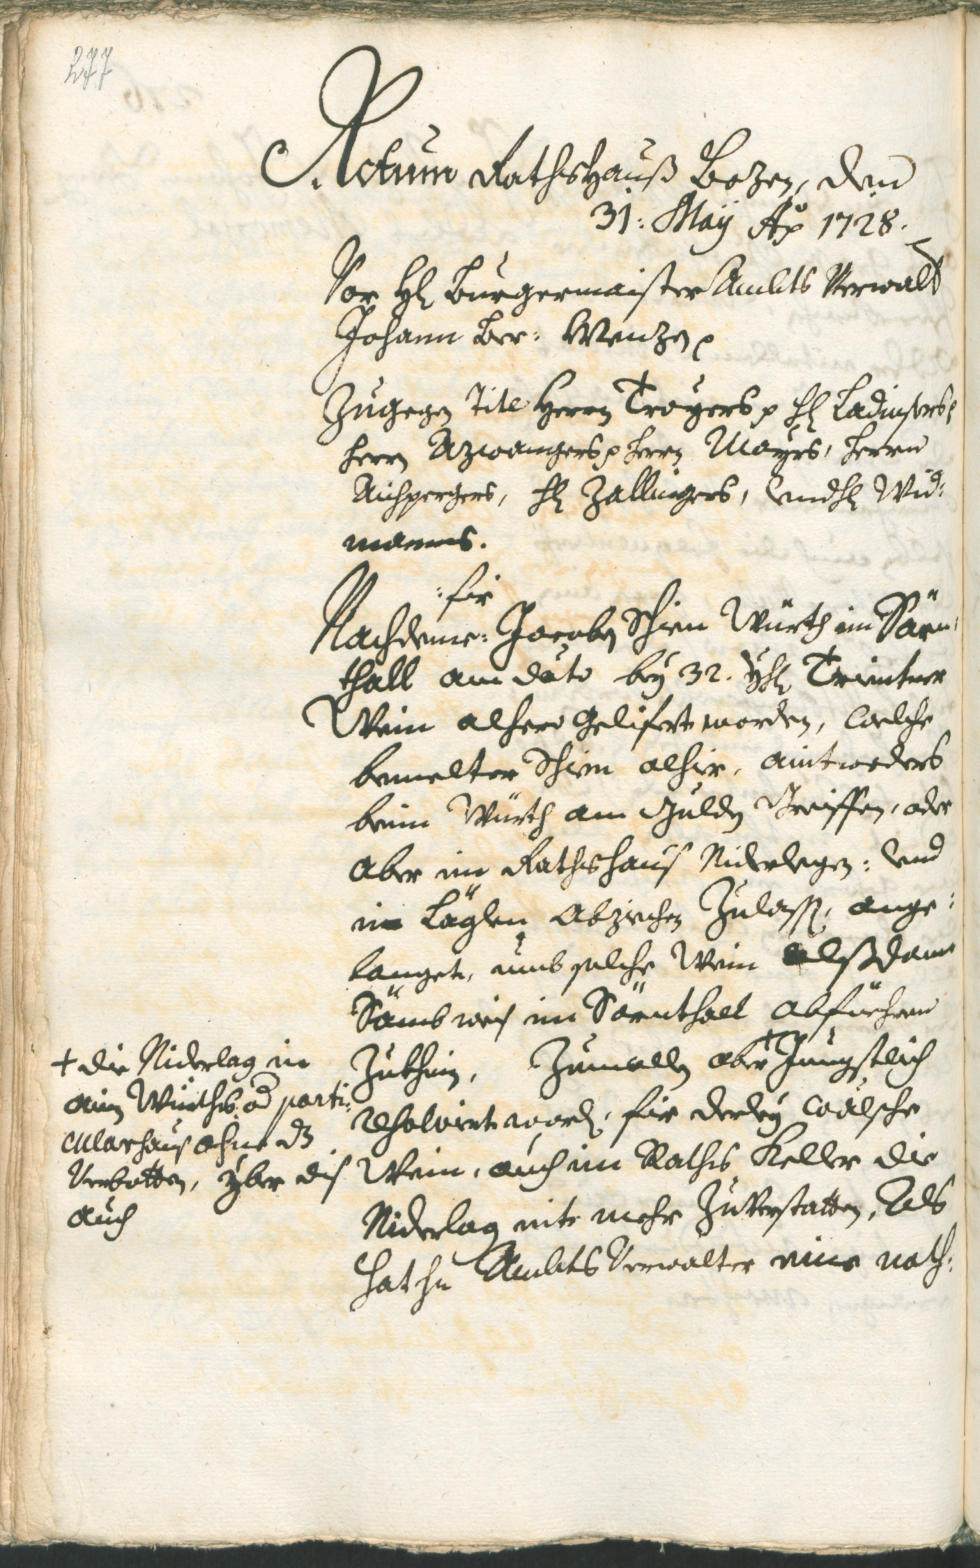 277
Actum Rathshauß Bozen, den
31: May Ao 1728.
Vor H. Burgermaister Ambts Verwalt
Johann Ber: Wenzen p
Zugegen Titl Herrn Troyers p H. Ladinsers p
herrn Azwangers p herrn Mayrs, herrn
Aichpergers, H. Zallingers, vnd H. Wid:
manns.
:fir
Nachdeme: Jacoben Schien Würth im Särn
thall am dato bey 32. Yhr. Trientner
Wein alhero gelifert worden, welche
bemelter Schien alhir, aintweders
beim Würth am Gulden Greiffen, oder
aber im Rathshaus Niderlegen: vnd
in Läglen abziechen Zulassen, ange:
langet, umb solche Wein alßdann
Sämbweis im Särnthall abfüehren
Zukhinen, Zumallen aber + Jüngstlich
resolvirt worden, für derley wälsche
Wein, auch im Raths Keller die
Niderlag nit mehr Zuverstatten, Als
hat H. Ambts Verwalter eine noth:
+ die Niderlag in
ain Würths od parti:
cularhaus ohne dz
Verbotten, yber dis
auch